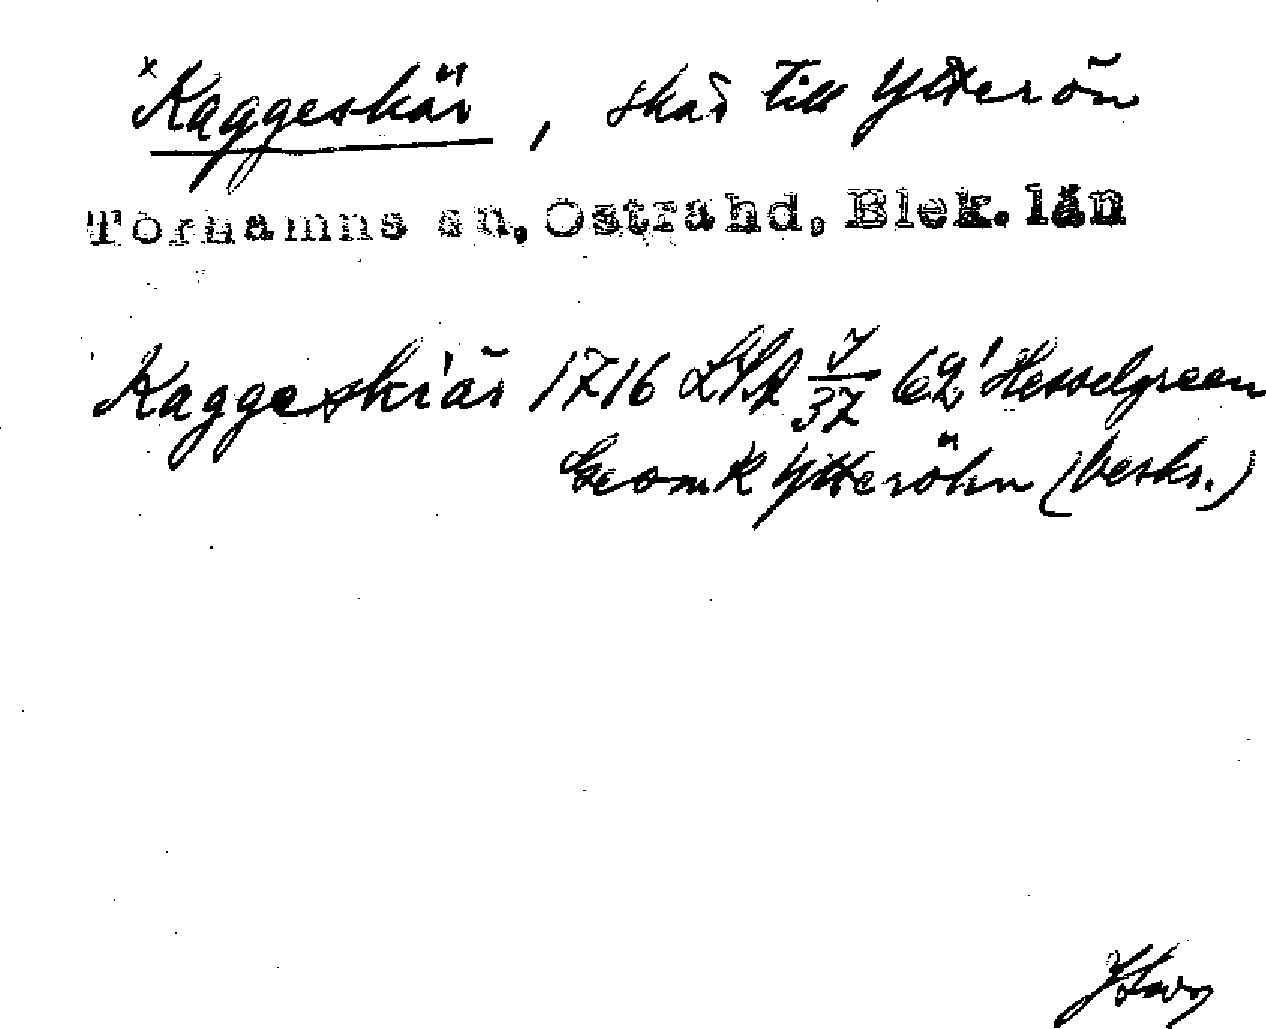 x Kaggeskär, skär till Ytterön
Torhamns sn, Östra hd, Blek. län
Kaggeskiär 1716 LSA J/37 62' Hesselgreen
Geom K Ytteröhn (beskr.)